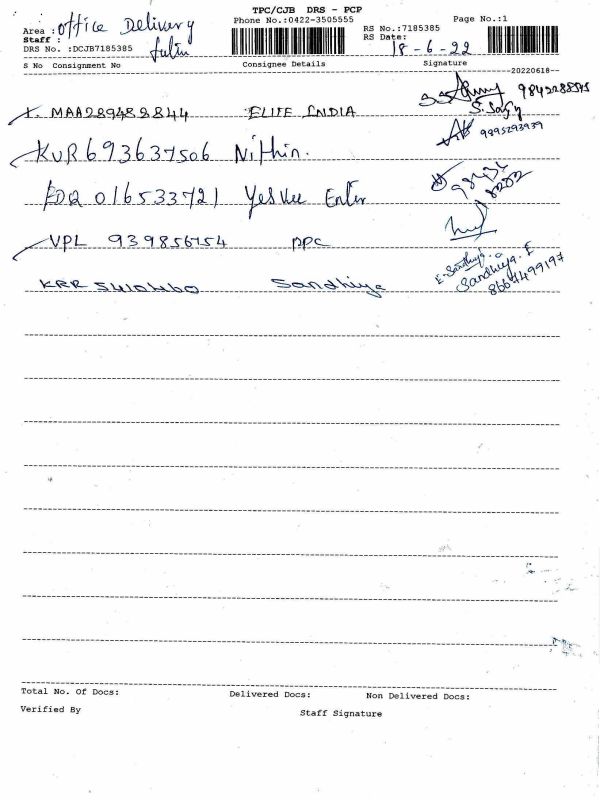 TPC/CJB DRS - PCP
Area : office Delivery Phone No.:0422-3505555 RS No.:7185385 Page No.:1
Staff : RS Date: 18-6-22
DRS No. :DCJB7185385
S No Consignment No Consignee Details Signature
20220618
1. MAA289482844 ELITE INDIA 9842288575
KUR693637506 Nithin. 9895293939
EDQ 016533721 Yeskee Enter
VPL 939856754 ppc
KRR 541014160 Sandhiya Sandhiya. E
8667499197
Total No. Of Docs: Delivered Docs: Non Delivered Docs:
Verified By Staff Signature